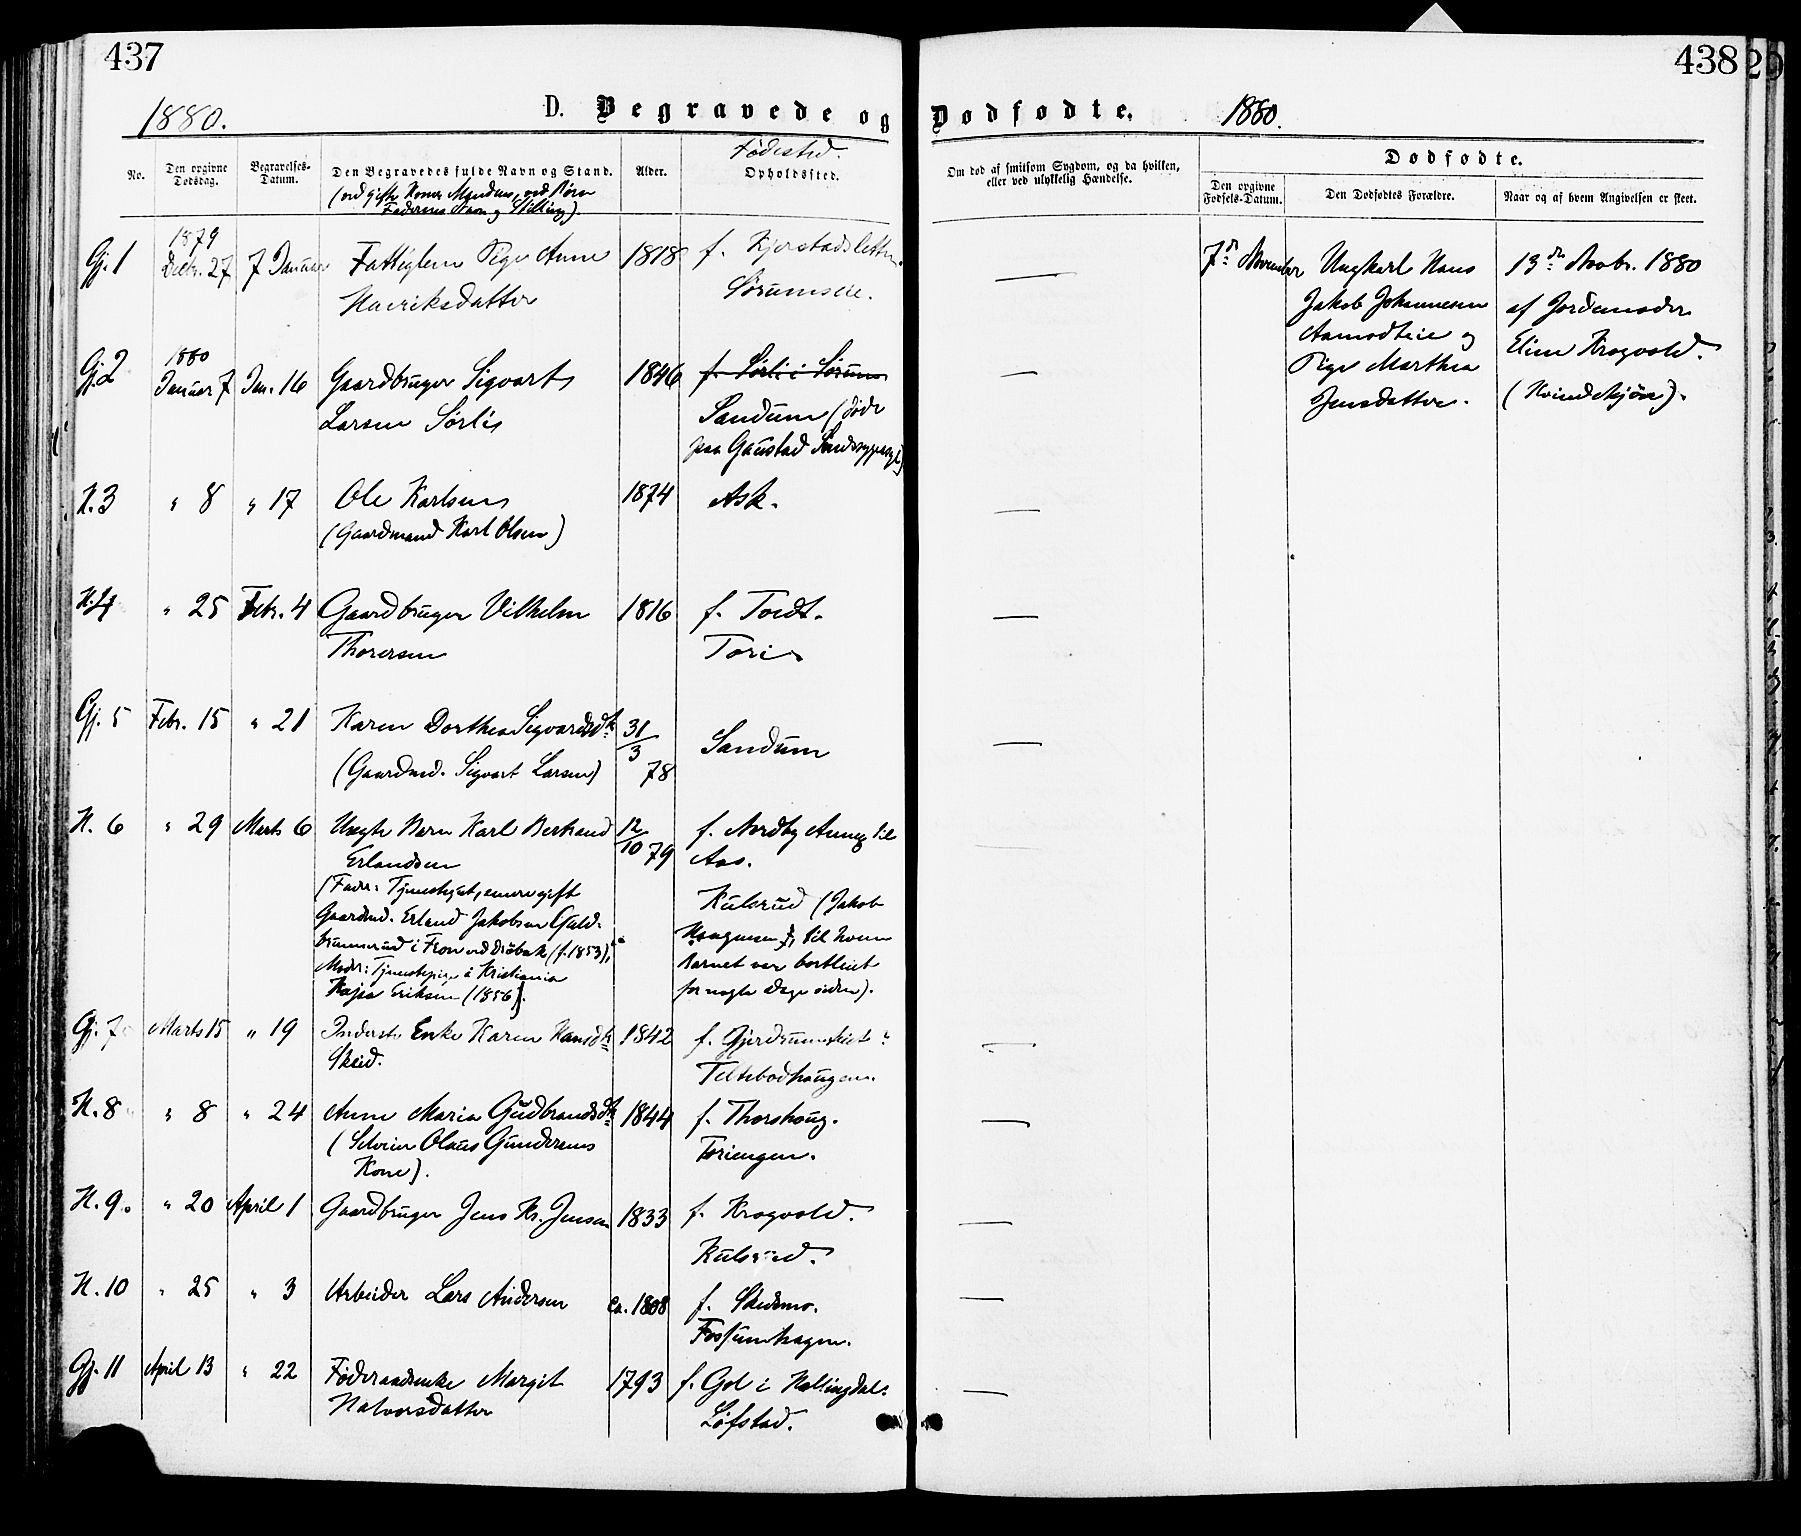 437
1880.
D. Begravede og
No.
Den opgivne Dødsdag.
Begravelses-Datum.
Den Begravedes fulde Navn og Stand.
(ved gifte Koner Mandens, ved Børn
Faderens Navn og Stilling).
Alder.
Fødested.
Opholdssted.
Gj. 1
1879
Decbr. 27
7 Januar
Fattiglem Pige Anne
Henriksdatter
1818
f. Kjerstadsletten.
Sørumseie.
Gj. 2
1880
Januar 7
Jan. 16
Gaardbruger Sigvart
Larsen Sørlie
1846
f. Sørli i Sørum
Sandum (døde
paa Gaustad Sindssygeasyl)
H. 3
" 8
" 17
Ole Karlsen
(Gaardmand Karl Olsen)
1874
Ask.
H. 4
" 25
Febr. 4
Gaardbruger Vilhelm
Thorersen
1816
f. Toedt.
Tori
Gj. 5
Febr. 15
" 21
Karen Dorthea Sigvardsdt.
(Gaardmd. Sigvart Larsen)
31/3 78
Sandum
H. 6
" 29
Marts 6
Uægte Barn Karl Bertrand
Erlandsen
(Fader: Tjenestegut, senere gift
Gaardmd. Erland Jakobsen Guld-
brunnerud i Fron ved Drøbak (f. 1853),
Moder: Tjenestepige i Kristiania
Kaja Eriksen (1856).
12/10 79
f. Nordby Annex til
Aas.
Kulsrud (Jakob
til hvem
Barnet var bortleiet
for nogle Dage siden).
Gj. 7
Marts 15
" 19
Inderst Enke Karen Hansdt.
Skeid.
1842
f. Gjerdrum
Teltebodhaugen.
H. 8
" 8
" 24
Anne Maria Gudbrandsdt.
(Selveier Olaus Gundersens
Kone).
1844
f. Thorshoug.
Toriengen.
H. 9.
" 20
April 1
Gaardbruger Jens Kr. Jensen
1833
f. Krogvold.
Kulsrud.
H. 10
" 25
" 3
Arbeider Lars Andersen
ca. 1808
f. Skedsmo.
Fossumhagen.
Gj. 11
April 13
" 22
Føderaadsenke Margit
Halvorsdatter
1793
f. Gol i Hallingdal.
Løfstad.
438
Dødfødte.
1880.
Om død af smitsom Sygdom, og da hvilken,
eller ved ulykkelig Hændelse.
Dødfødte.
Den opgivne Fødsels-Datum.
Den Dødfødtes Forældre.
Naar og af hvem Angivelsen er skeet.
7de November
Ungkarl Hans
Jakob Johannesen
Aamodteie og
Pige Marthea
Jensdatter.
13de Novbr. 1880
af Jordemoder
Eline Krogvold.
(Kvindekjøn).